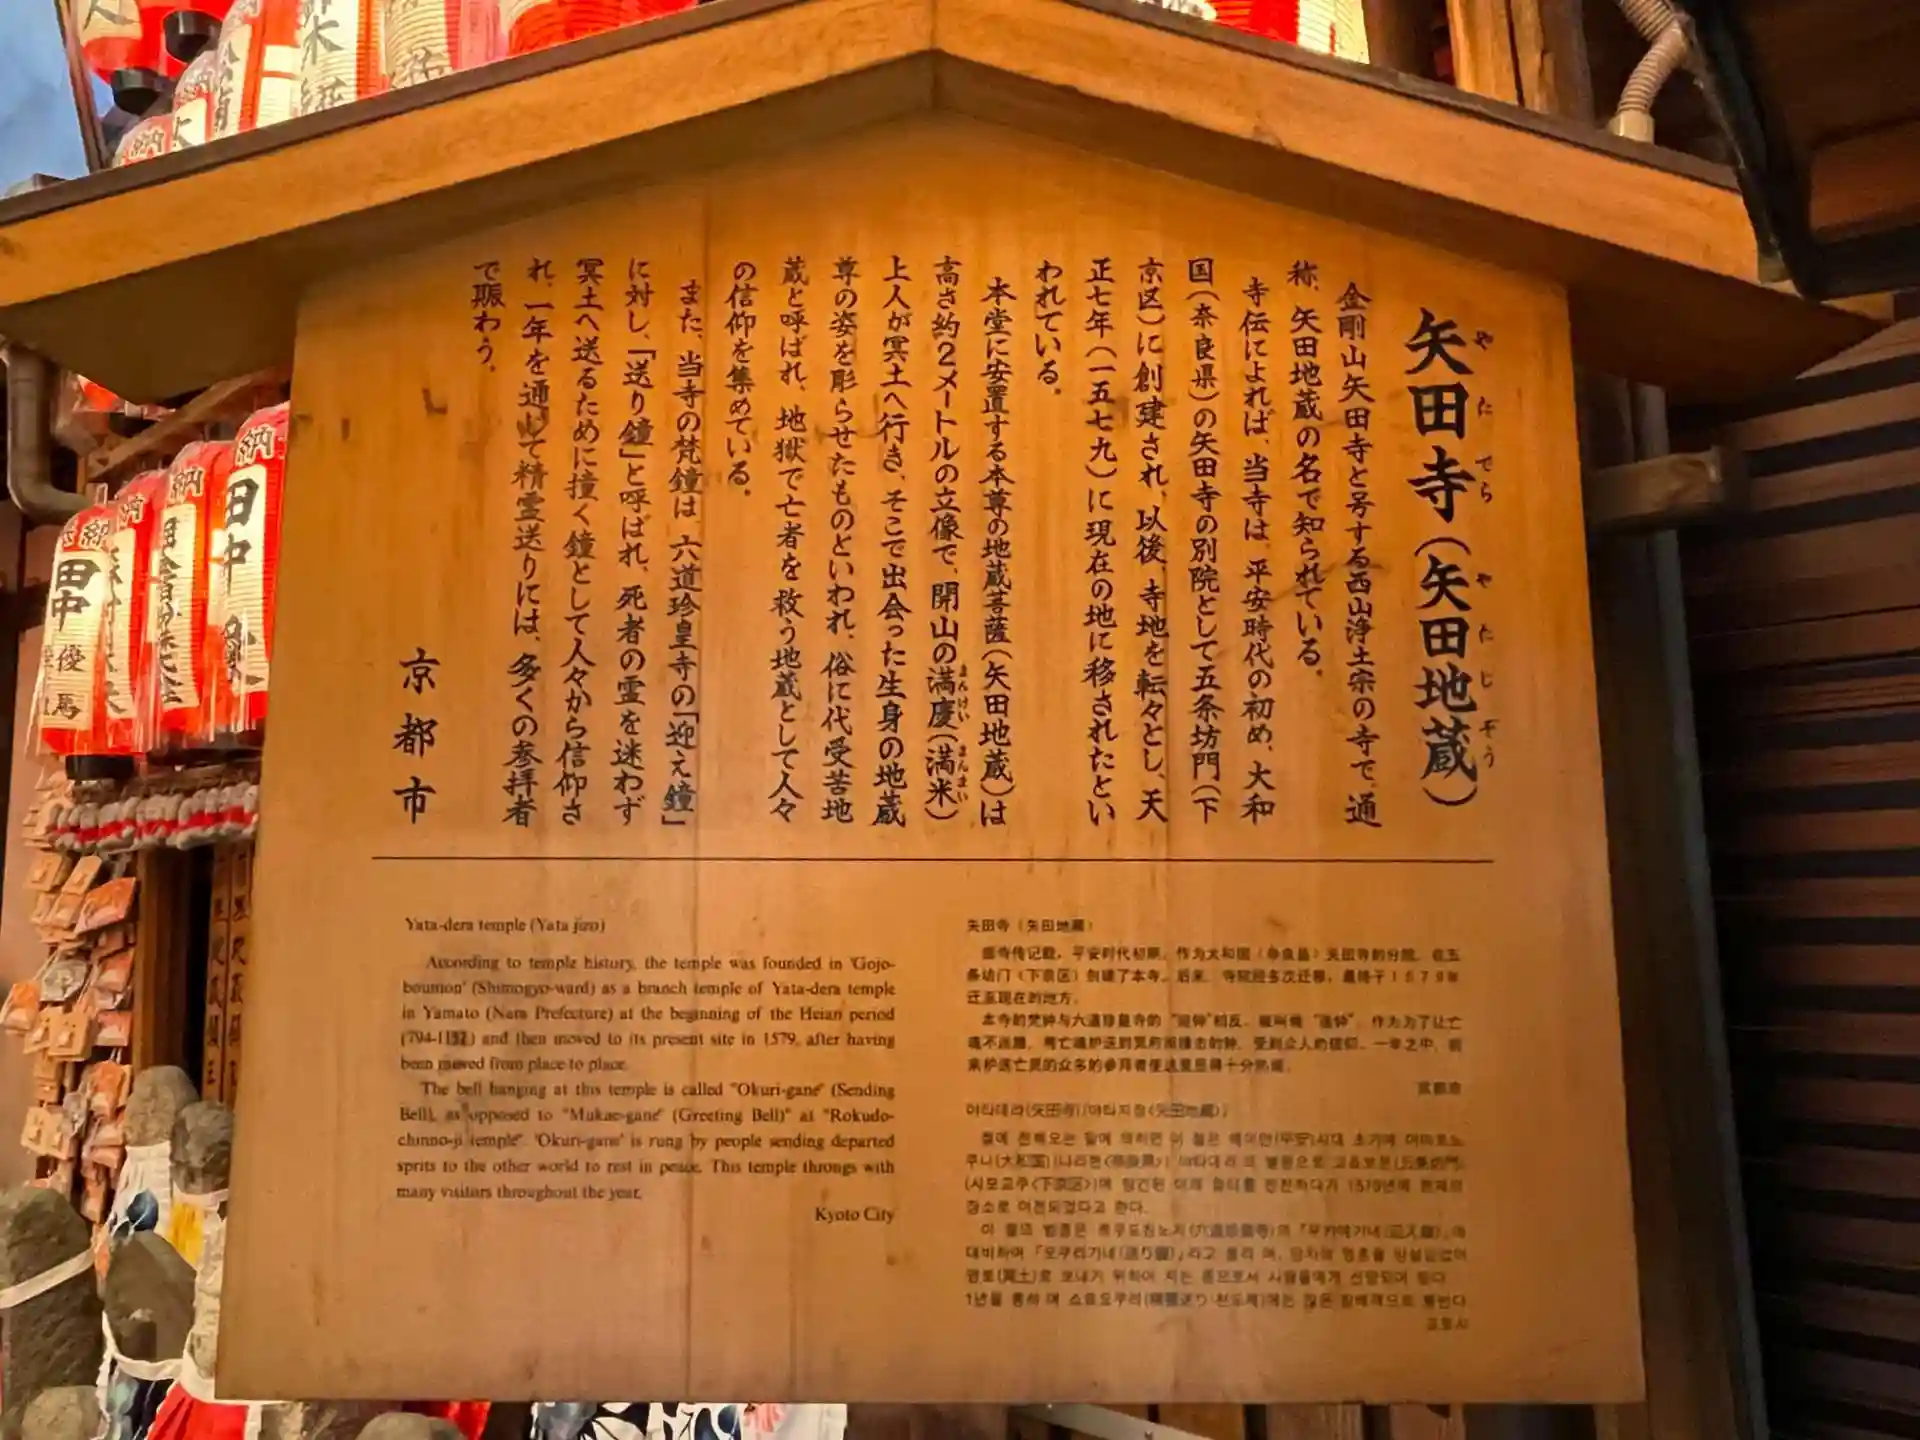 矢田寺(矢田地蔵)
やたでら
やたじぞう
金剛山矢田寺と号する西山浄土宗の寺で、通
称、矢田地蔵の名で知られている。
寺伝によれば、当寺は、平安時代の初め、大和
国(奈良県)の矢田寺の別院として五条坊門(下
京区)に創建され、以後、寺地を転々とし、天
正七年(一五七九)に現在の地に移されたとい
われている。
本堂に安置する本尊の地蔵菩薩(矢田地蔵)は
高さ約2メートルの立像で、開山の満慶(満米)
まんけい
まんまい
上人が冥土へ行き、そこで出会った生身の地蔵
尊の姿を彫らせたものといわれ、俗に代受苦地
蔵と呼ばれ、地獄で亡者を救う地蔵として人々
の信仰を集めている。
また、当寺の梵鐘は、六道珍皇寺の「迎え鐘」
に対し、「送り鐘」と呼ばれ、死者の霊を迷わず
冥土へ送るために撞く鐘として人々から信仰さ
れ、一年を通して精霊送りには、多くの参拝者
で賑わう。
京都市
Yata-dera temple (Yata jizo)
According to temple history, the temple was founded in 'Gojo-
boumon' (Shimogyo-ward) as a branch temple of Yata-dera temple
in Yamato (Nara Prefecture) at the beginning of the Heian period
(794-1192) and then moved to its present site in 1579, after having
been moved from place to place.
The bell hanging at this temple is called "Okuri-gane" (Sending
Bell), as opposed to "Mukae-gane" (Greeting Bell)" at "Rokudo-
chinno-ji temple". 'Okuri-gane' is rung by people sending departed
sprits to the other world to rest in peace. This temple throngs with
many visitors throughout the year.
Kyoto City
矢田寺(矢田地藏)
据寺传记载,平安时代初期,作为大和国(奈良县)矢田寺的分院,在五
条坊门(下京区)创建了本寺。后来,寺院经多次迁移,最终于1579年
迁至现在的地方。
本寺的梵钟与六道珍皇寺的"迎钟"相反,被叫做"送钟",作为为了让亡
京都市
야타데라(矢田寺)(야타지장<矢田地蔵>)
절에 전해오는 말에 의하면 이 절은 헤이안(平安)시대 초기에 야마토노
장소로 이전되었다고 한다.
교토시
納
田中
納
田中
優
納
納